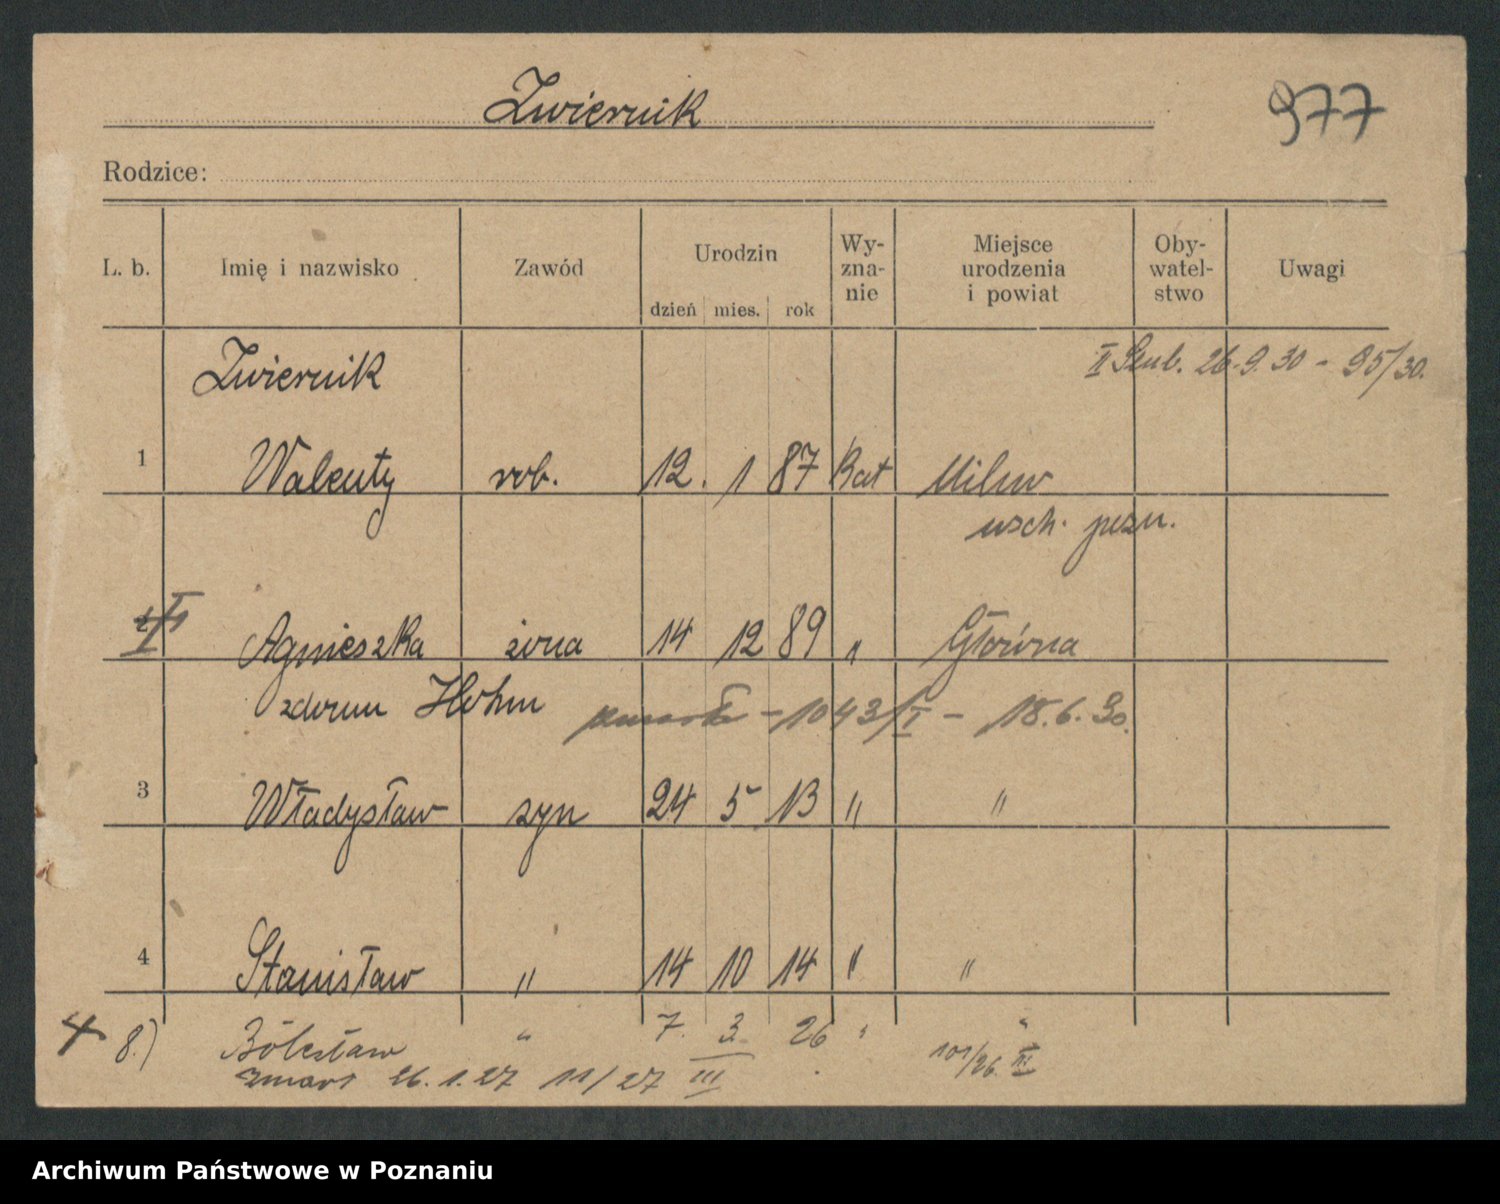 Zwiernik
977
Rodzice:
L. b. Imię i nazwisko Zawód Urodzin dzień mies. rok Wy-zna-nie Miejsce urodzenia i powiat Oby-watel-stwo Uwagi
Zwiernik II Szub. 26.9.30 - 95/30.
1 Walenty rob. 12. 1 87 Kat
wsch. pozn.
Agnieszka żona 14 12 89 " Główna
zdomu Hohm - 1043/I - 18.6.30.
3 Władysław syn 24 5 13 " "
4 Stanisław " 14 10 14 " "
8.) Bolesław " 7. 3. 26 " "
zmarł 26.1.27 11/27 III 101/26. III
Archiwum Państwowe w Poznaniu